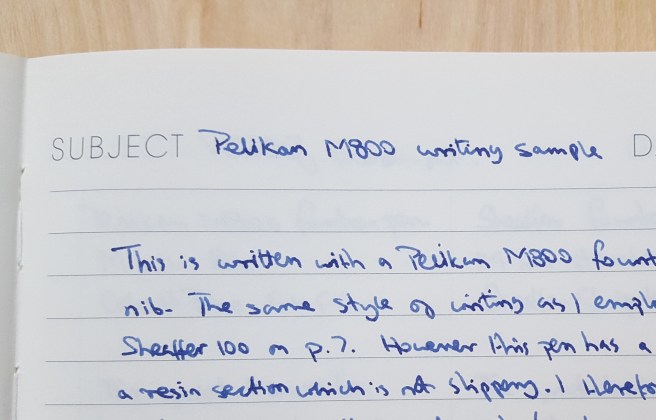 SUBJECT Pelikan M800 writing sample D
This is written with a Pelikan M800 fount
nib. The same style of writing as I empl
Sheaffer 100 on p.7. However this pen has a
a resin section which is not slippery. I therefo